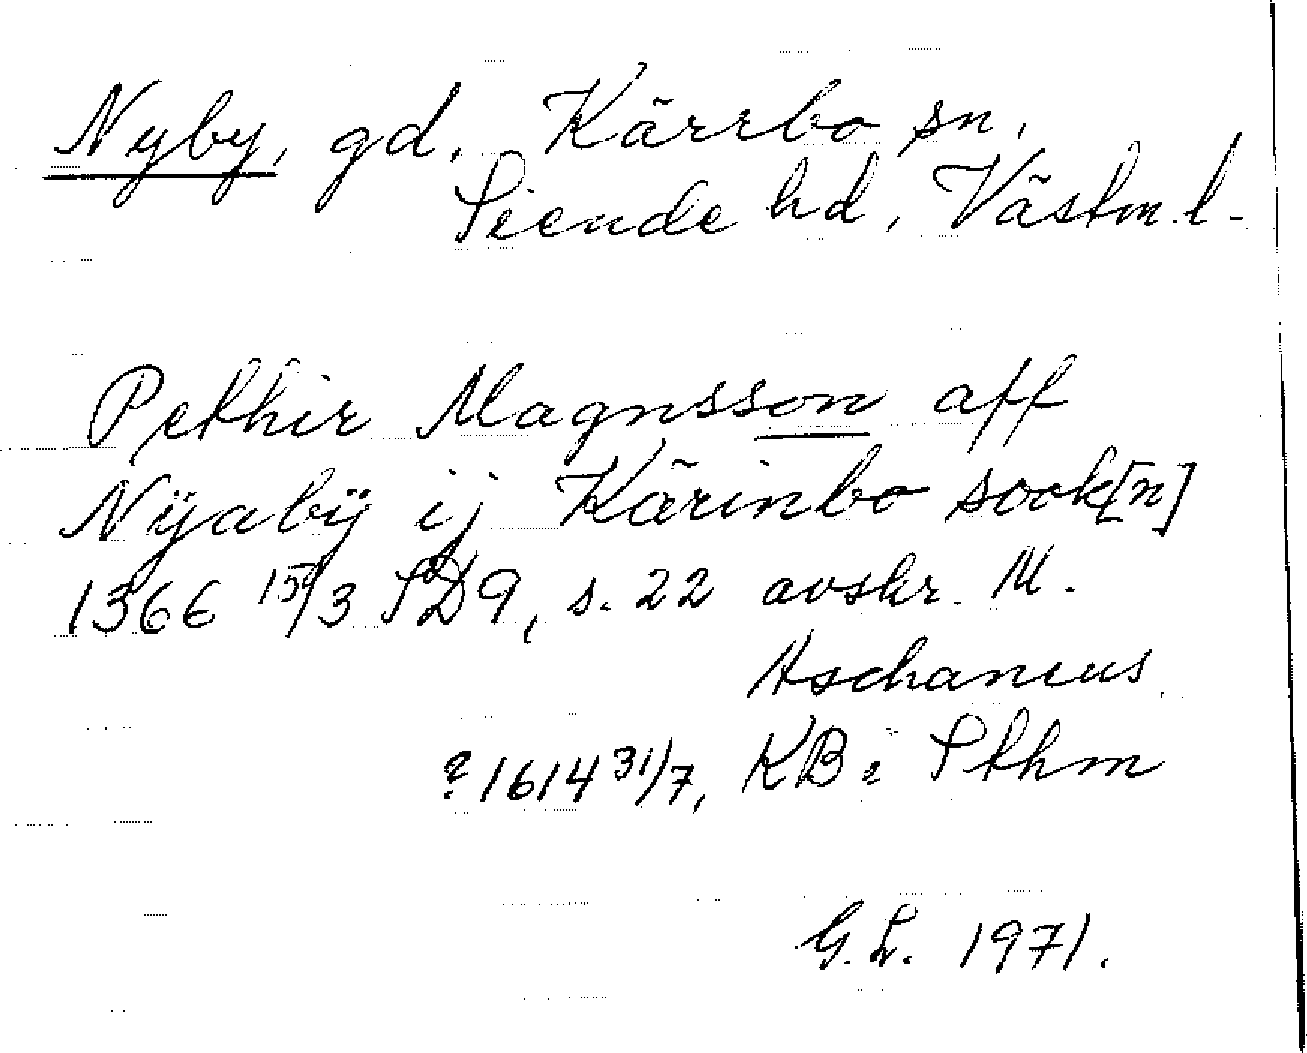 Nyby, gd. Kärrbo sn,
Siende hd, Västm.l.
Pethir Magnsson aff
Nÿabÿ ij Kärinbo sook[n]
1366 15/3 SD9, s. 22 avskr. M.
Aschaneus
?1614 31/7, KB i Sthm
G.L. 1971.